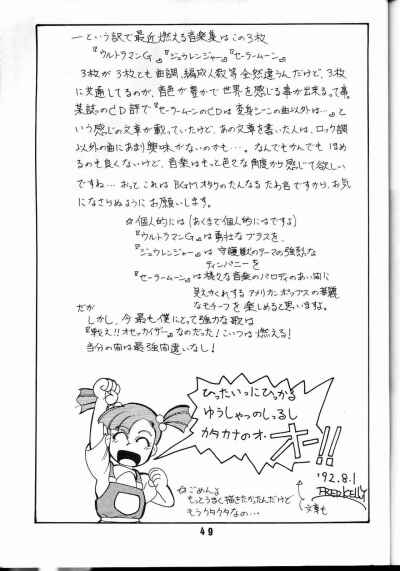 ―という訳で最近燃える音楽集はこの3枚
『ウルトラマンG』『ジュウレンジャー』『セーラームーン』
3枚が3枚とも曲調、編成人数等全然違うんだけど、3枚
に共通してるのが、音色が豊かで世界を感じる事が出来るって事。
某誌のCD評で『セーラームーンのCDは変身シーンの曲以外は…』と
いう感じの文章が載っていたけど、あの文章を書いた人は、ロック調
以外の曲にあまり興味がないのかも…。なんでもかんでもほめ
るのも良くないけど、音楽はもっと色々な角度から感じて欲しい
ですね…おっとこれはBGMオタクのたんなるたわ言ですから、お気
になさらぬようにお願いします。
☆個人的には(あくまで個人的にはですよ)
『ウルトラマンG』は勇壮なブラスを、
『ジュウレンジャー』は守護獣のテーマの強烈な
ティンパニーを
『セーラームーン』は様々な音楽のパロディのあい間に
見えかくれするアメリカンポップスの華麗
なモチーフを楽しめると思いますよ。
だが
しかし、今最も僕にとって強力な歌は
『戦え!!オセッカイザー』なのだった!こいつは燃える!
当分の間は最強間違いなし!
ひったいいっにひっかる
ゆうしゃっのしっるし
カタカナのオ・
オー!!
'92.8.1
FRED KELLY
☆ごめんよ
もっとうまく描きたかったんだけど
もうクタクタなの…
↑文章も
49